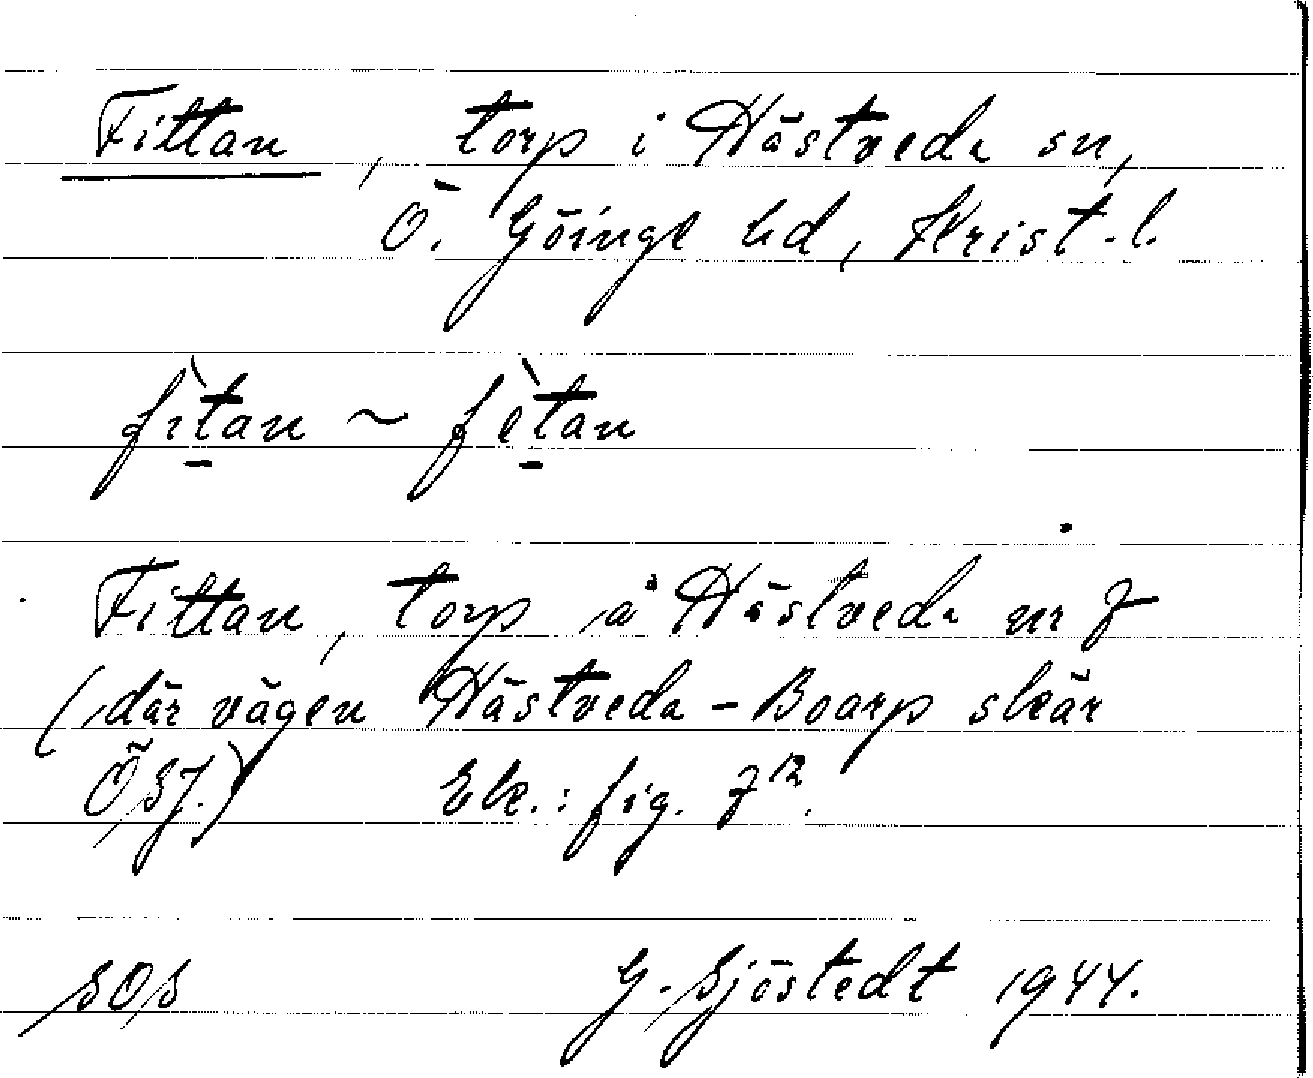 Fittan, torp i Hästveda sn,
Ö. Göinge hd, Krist. l.
fìt̠an ~ fèt̠an
Fittan, torp å Hästveda nr 7
(där vägen Hästveda - Boarp skär
ÖSJ.) Ek.: fig. 7¹².
SOS G. Sjöstedt 1944.